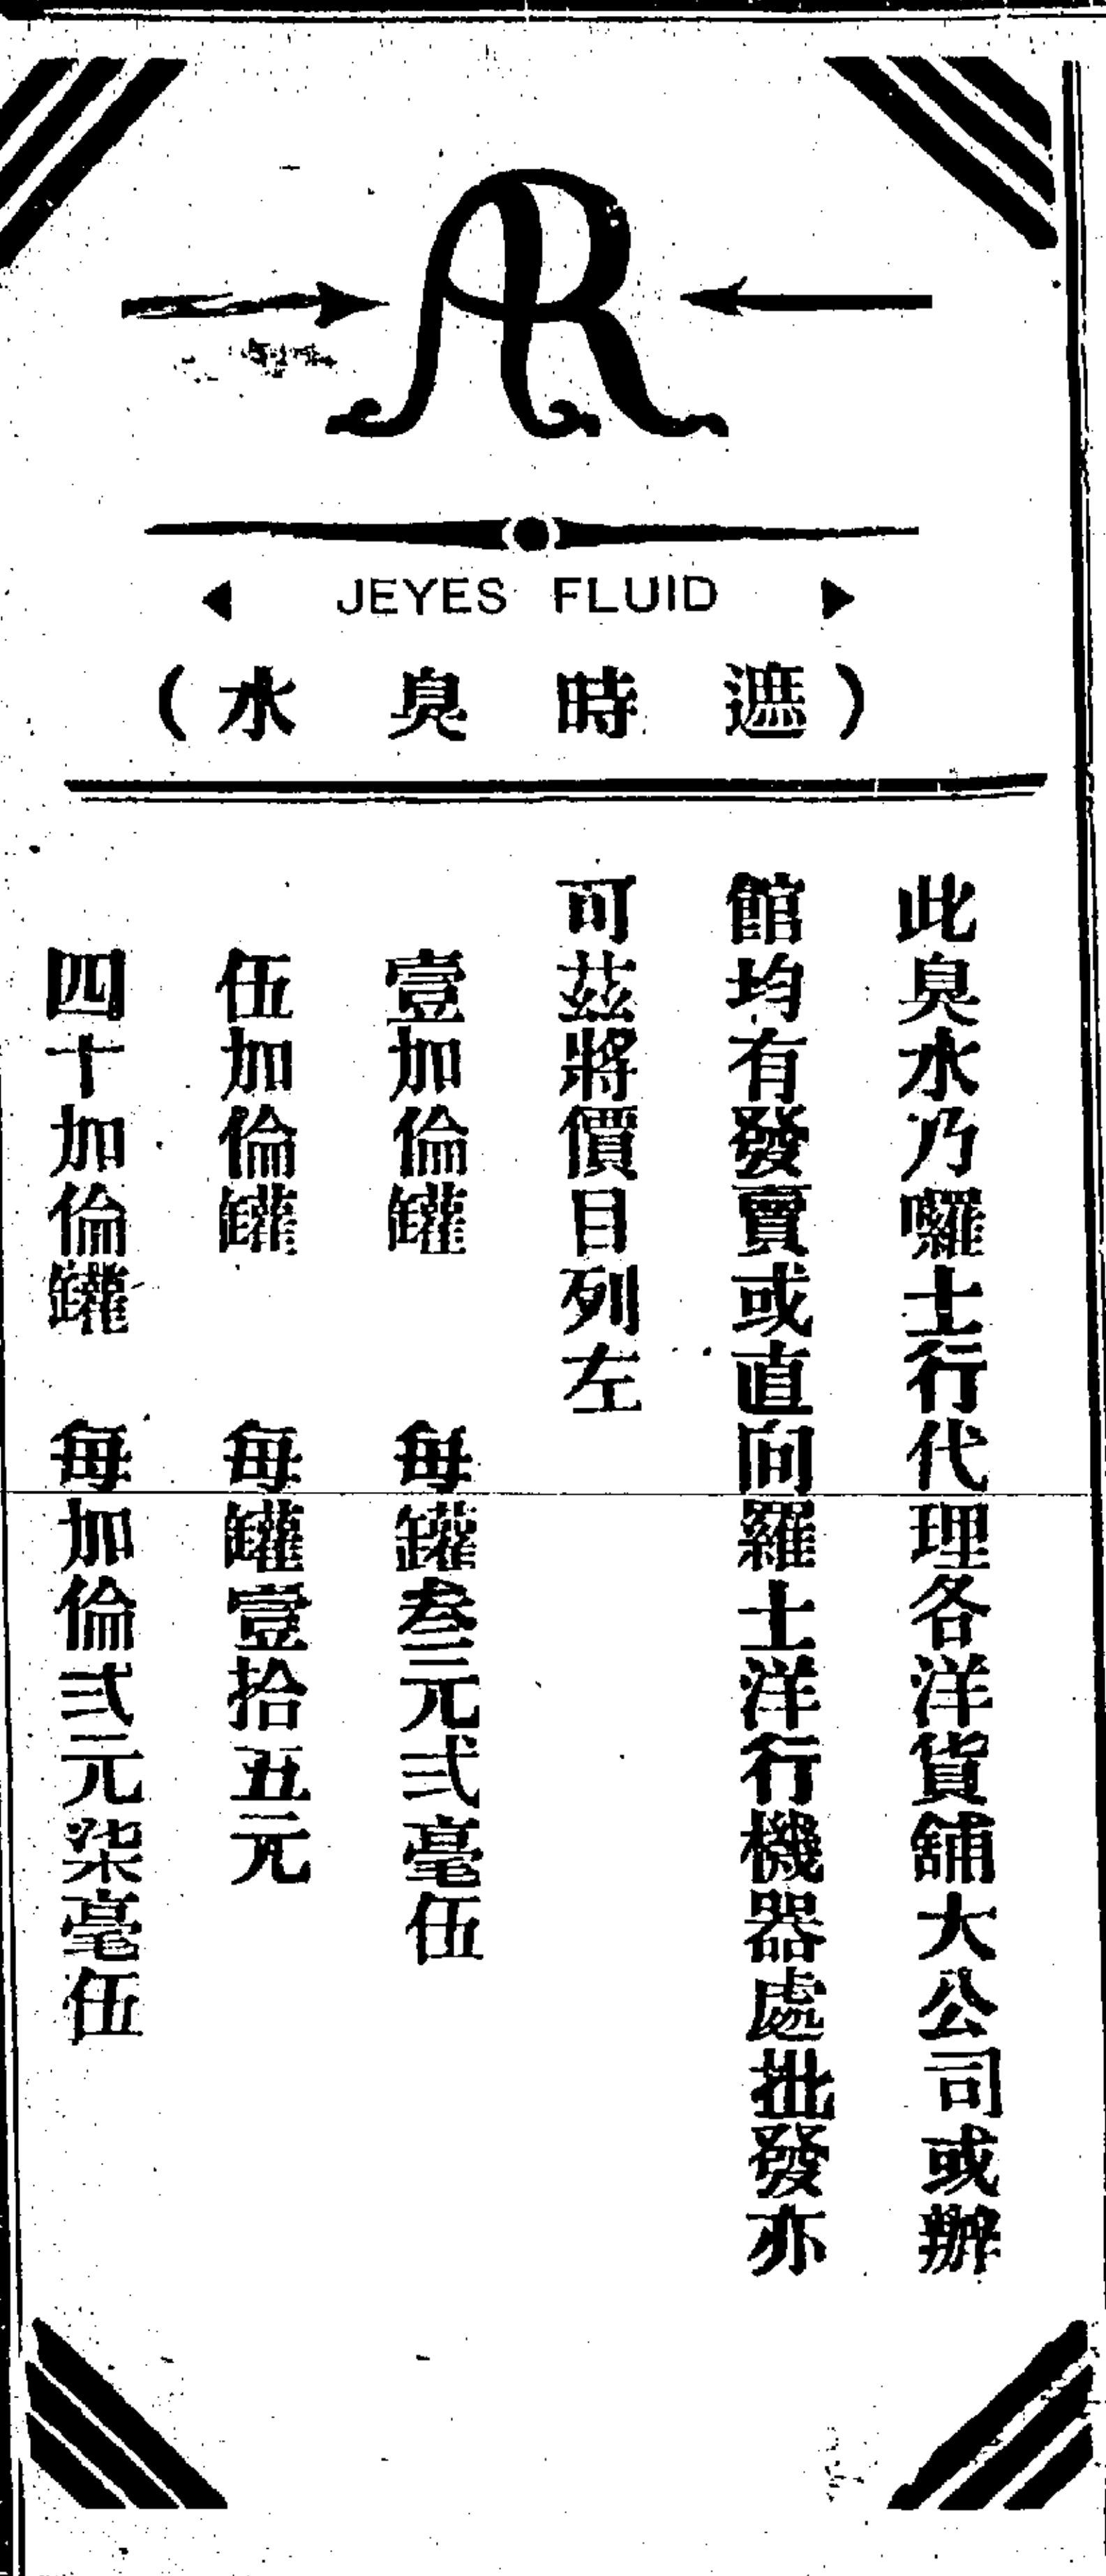 AR
JEYES FLUID
(遮時臭水)
此臭水乃囉士行代理各洋貨舖大公司或辦
館均有發賣或直向羅士洋行機器處批發亦
可茲將價目列左
壹加倫罐 每罐叁元弍毫伍
伍加倫罐 每罐壹拾五元
四十加倫罐 每加倫弍元柒毫伍